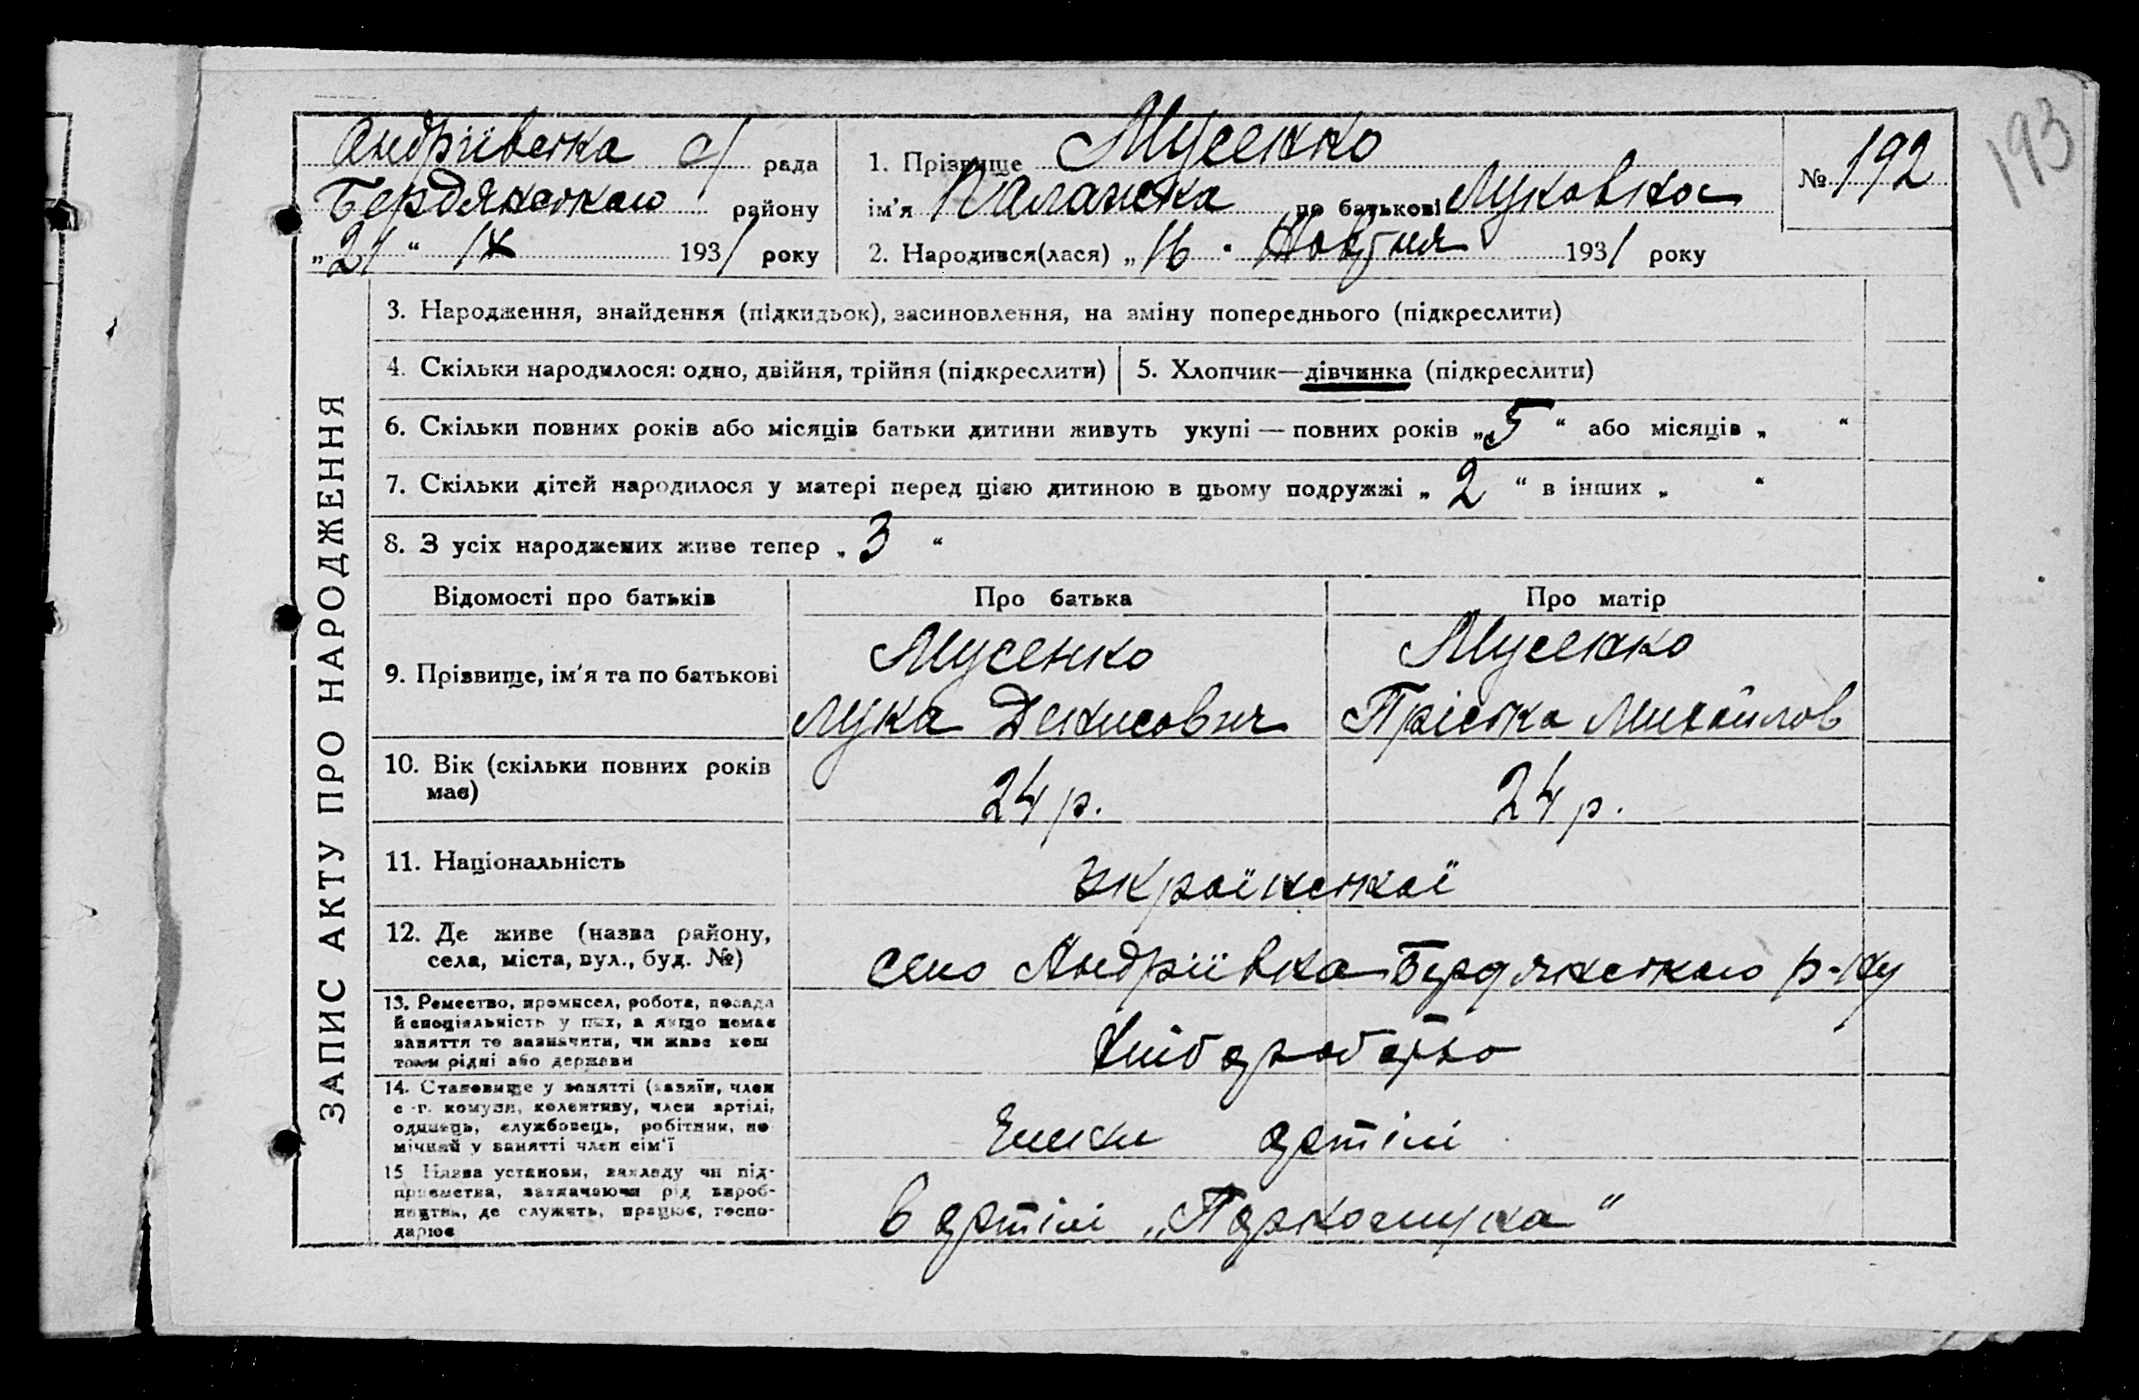 193
Андріївська с/ рада
Бердянського району
„21“ IX 1931 року
1. Прізвище Мусенко
ім'я Палажка по батькові Луковна
2. Народився(лася) „16“ Жовтня 1931 року
№ 192
ЗАПИС АКТУ ПРО НАРОДЖЕННЯ
3. Народження, знайдення (підкидьок), засиновлення, на зміну попереднього (підкреслити)
4. Скільки народилося: одно, двійня, трійня (підкреслити)
5. Хлопчик—дівчинка (підкреслити)
6. Скільки повних років або місяців батьки дитини живуть укупі — повних років „5“ або місяців „ “
7. Скільки дітей народилося у матері перед цією дитиною в цьому подружжі „2“ в інших „ “
8. З усіх народжених живе тепер „3“
Відомості про батьків
Про батька
Про матір
9. Прізвище, ім'я та по батькові
Мусенко
Лука Денисович
Мусенко
Пріська Михайлов
10. Вік (скільки повних років
має)
24 р.
24 р.
11. Національність
української
12. Де живе (назва району,
села, міста, вул., буд. №)
село Андріївка Бердянського р-ну
13. Ремество, промисел, робота, посада
й спеціяльність у них, а якщо немає
заняття то зазначити, чи живе кош
том рідні або держави
хліборобство
14. Становище у занятті (хазяїн, член
с.-г. комуни, колективу, член артілі,
одинець, службовець, робітник, по
мічний у занятті член сім'ї
Члени артілі
15 Назва установи, закладу чи під-
приємства, зазначаючи рід вироб-
ництва, де служить, працює, госпо-
дарює
в артілі „Паркомуна“